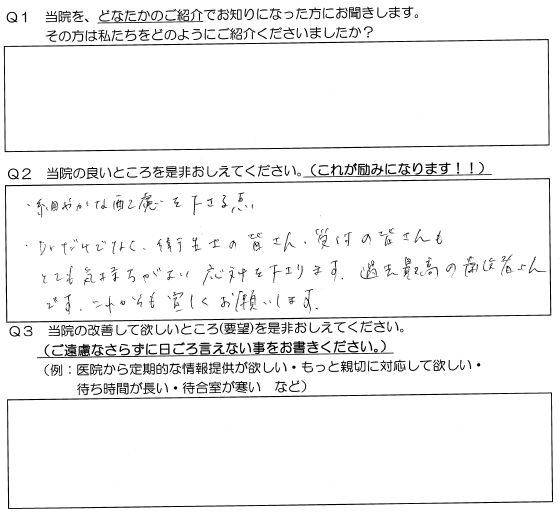 Q1 当院を、どなたかのご紹介でお知りになった方にお聞きします。
その方は私たちをどのようにご紹介くださいましたか?
Q2 当院の良いところを是非おしえてください。(これが励みになります!!)
・細やかな配慮を下さる点
・Drだけでなく、衛生士の皆さん、受付の皆さんも
とても気持ちがよい応対を下さります。過去最高の歯医者さん
です。これからも宜しくお願いします。
Q3 当院の改善して欲しいところ(要望)を是非おしえてください。
(ご遠慮なさらずに日ごろ言えない事をお書きください。)
(例:医院から定期的な情報提供が欲しい・もっと親切に対応して欲しい・
待ち時間が長い・待合室が寒い など)